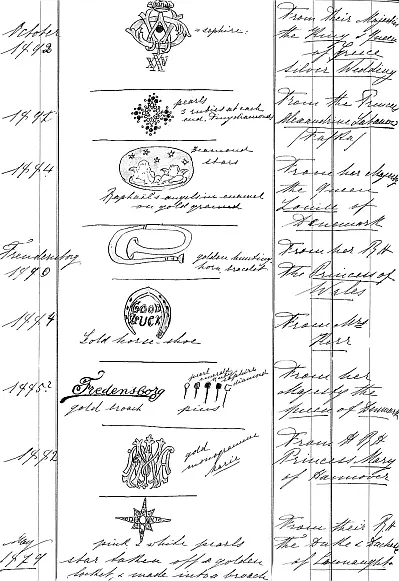 October
1892
saphire.
From their Majesties
the King & Queen
of Greece
silver Wedding
pearls
3 rubies at each
end. Tiny diamonds
From the Princess
Alexandrine
1884
diamond
stars
Raphael's angels in enamel
on gold ground
From her Majesty
the Queen
Louise of
Denmark
1890
golden hunting
horn bracelet
From her R H
the Princess of
Wales
GOOD
LUCK
Gold horse-shoe
From Mrs
Kerr
1885?
Fredensborg
gold broach
pearl
emerald
saphire
diamond
pins
From her
Majesty the
queen of Denmark
1882
gold
monogramme
From H R H
Princess Mary
of Hannover
May
1879
pink & white pearls
star taken off a golden
locket, & made into a broach
From their R H
the Duke & Duchess
of Connaught